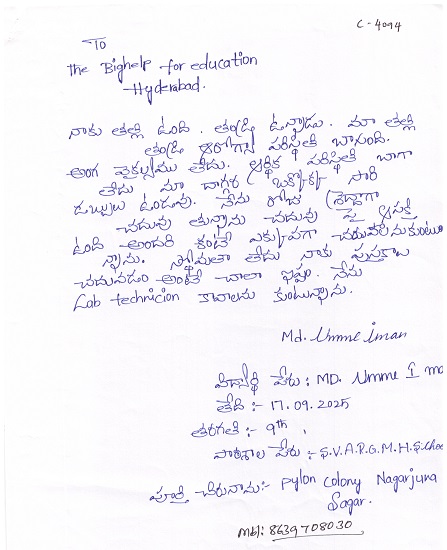 C-4094
To
the Bighelp for education
Hyderabad.
నాకు తల్లి ఉంది. తండ్రి ఉన్నాడు. మా తల్లి
తండ్రి ఆరోగ్య పరిస్థితి బాగుంది.
అంగ వైకల్యము లేదు. ఆర్థిక పరిస్థితి బాగా
లేదు మా దగ్గర ఒక్కొక్క సారి
డబ్బులు ఉండవు. నేను రోజు శ్రద్దగా
చదువు తున్నాను చదువు పై ఆసక్తి
ఉంది అందరి కంటే ఎక్కువగా చదువాలనుకుంటు
న్నాను. స్థోమతా లేదు నాకు పుస్తకాలు
చదువడం అంటే చాలా ఇష్టం. నేను
Lab technicion కావాలను కుంటున్నాను.
Md. Umme iman
విద్యార్థి పేరు: MD. Umme I ma
తేది :- 17.09.2025
తరగతి :- 9th
పాఠశాల పేరు :- S.V.A.R.G.M.H.S.Choo
పూర్తి చిరునామ:- pylon colony Nagarjuna
Sagar.
Mbl: 8639708030